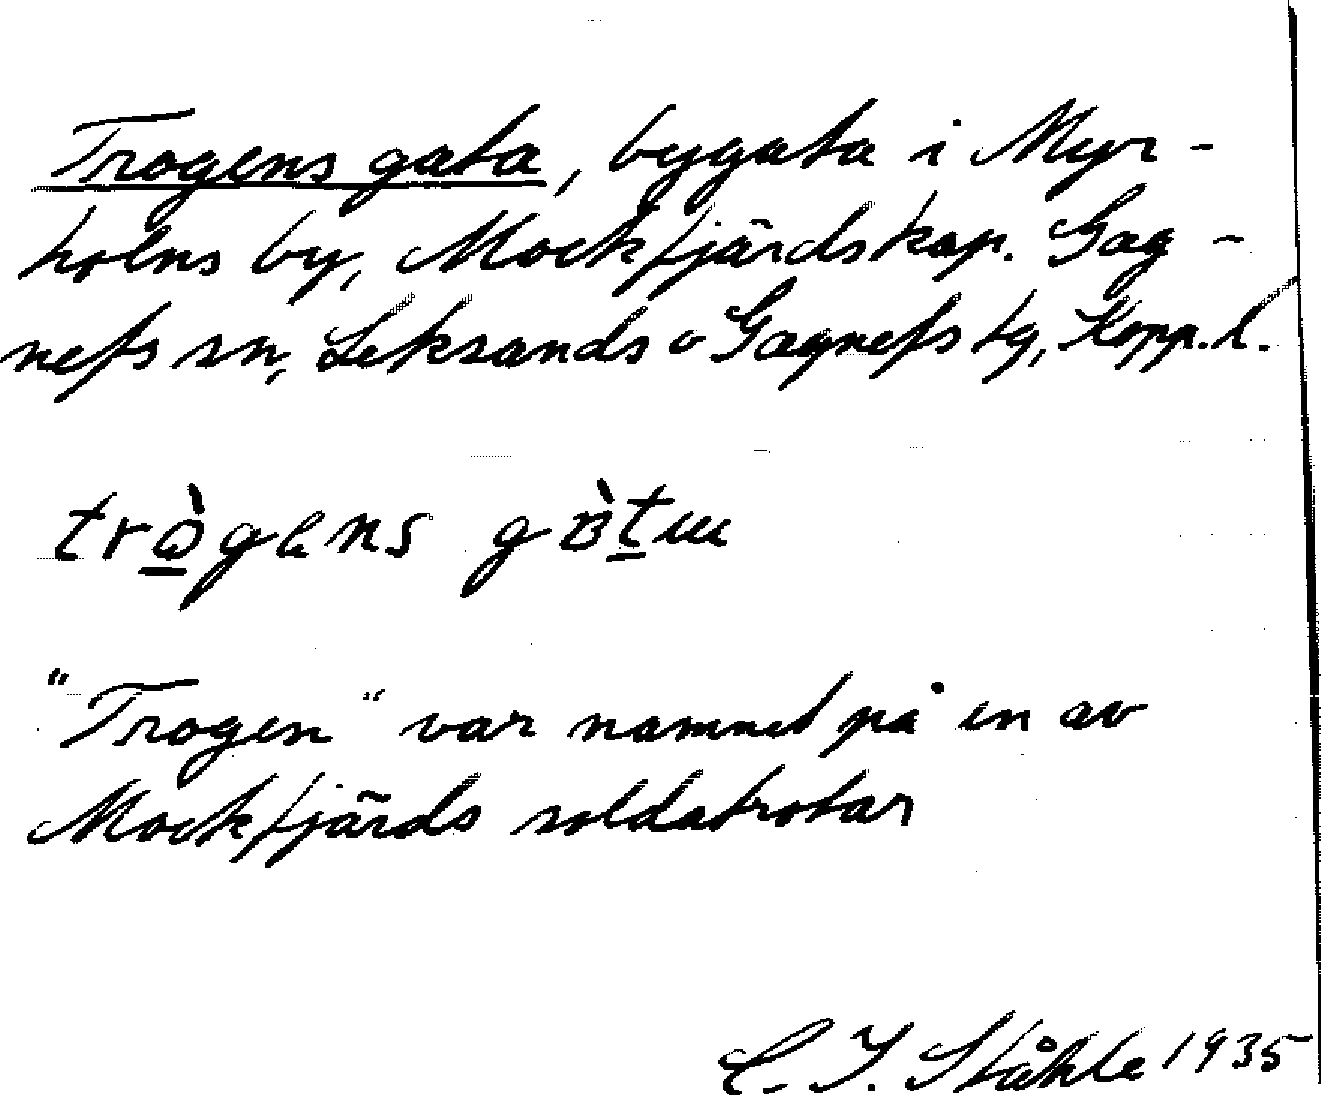 Trogens gata, bygata i Myr-
holns by, Mockfjärds kap. Gag-
nefs sn, Leksands o Gagnefs tg, Kopp. l.
trògens gàtɯ
"Trogen" var namnet på en av
Mockfjärds soldatrotar
C. I. Ståhle 1935